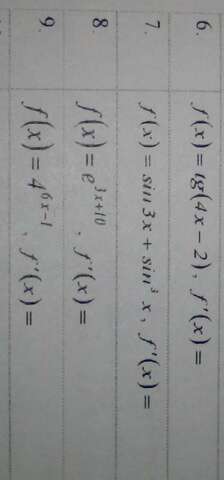 6. f(x) = lg(4x − 2), f'(x) =
7. f(x) = sin 3x + sin³ x, f'(x) =
8. f(x) = e^{3x+10}, f'(x) =
9. f(x) = 4^{6x−1}, f'(x) =